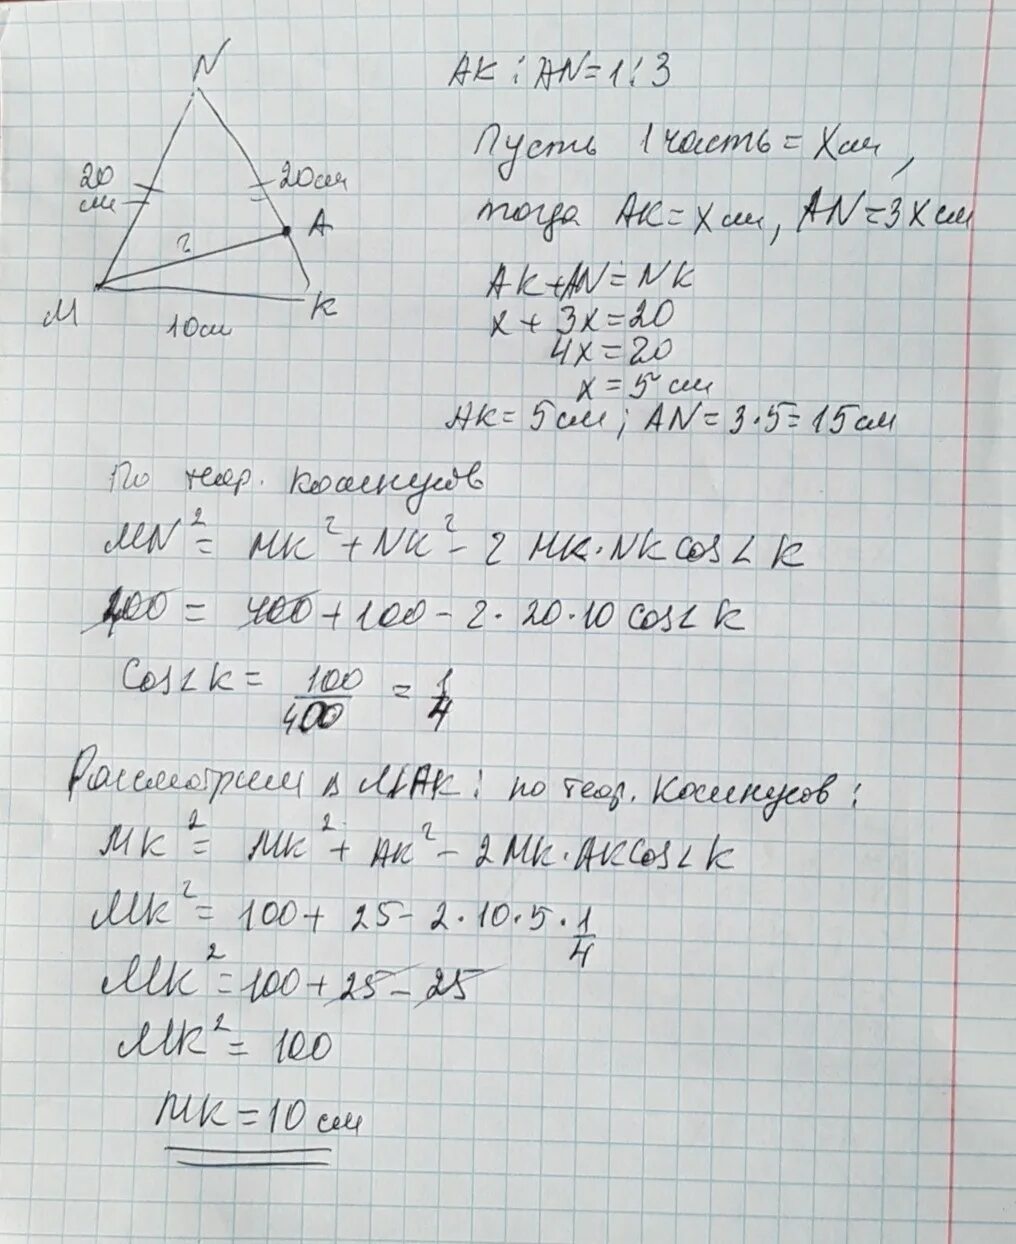 N
20
см
20см
?
A
M
K
10см
AK : AN = 1 : 3
Пусть 1 часть = x см,
тогда AK = x см, AN = 3x см
AK + AN = NK
x + 3x = 20
4x = 20
x = 5 см
AK = 5 см; AN = 3·5 = 15 см
По теор. косинусов
MN² = MK² + NK² - 2 MK·NK cos∠K
400 = 400 + 100 - 2·20·10 cos∠K
cos∠K = 100/400 = 1/4
Рассмотрим △ MAK: по теор. косинусов:
MK² = MK² + AK² - 2MK·AK cos∠K
MK² = 100 + 25 - 2·10·5·1/4
MK² = 100 + 25 - 25
MK² = 100
MK = 10 см